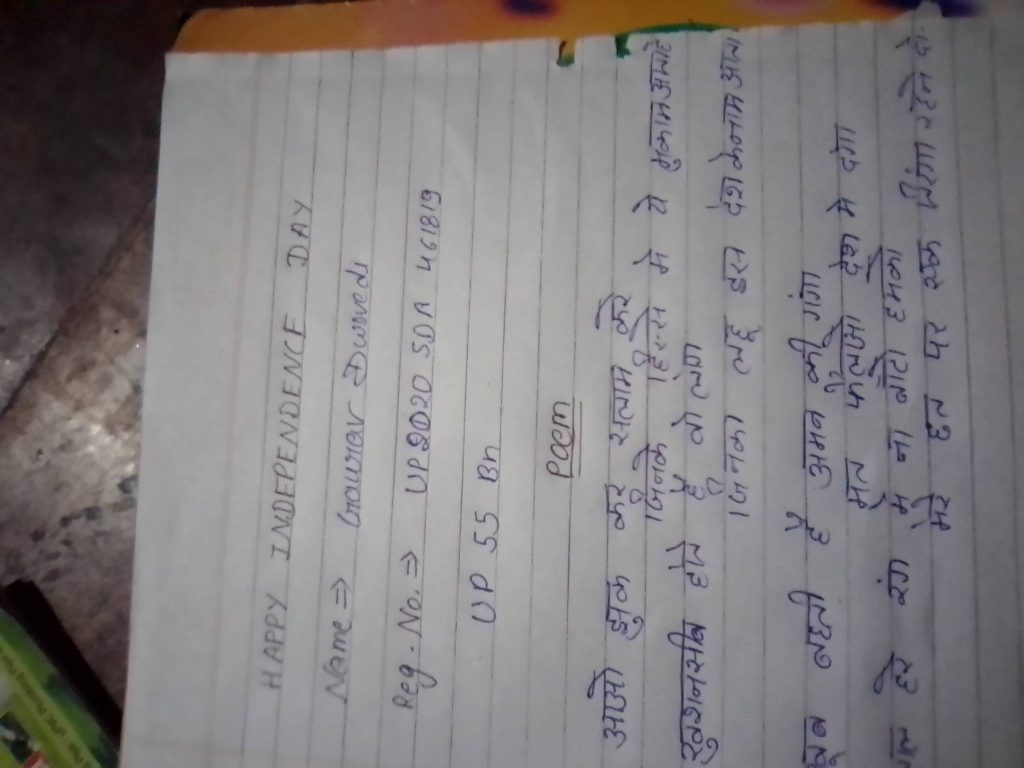 HAPPY INDEPENDENCE DAY
Name => Gaurav Dwivedi
Reg. No. => UP2D20 SDA 461819
UP 55 Bn
Poem
आओ झुक कर सलाम करे
जिनके हिस्से मे ये मुकाम आता है
खुशनसीब होते है वो लोग
जिनका लहू इस देश के काम आता
खूब बहती है अमन की गंगा
मत फैलाओ देश मे दंगा
लाल हरे रंग मे ना बांटो हमको
मेरे छत पर एक तिरंगा रहने दो